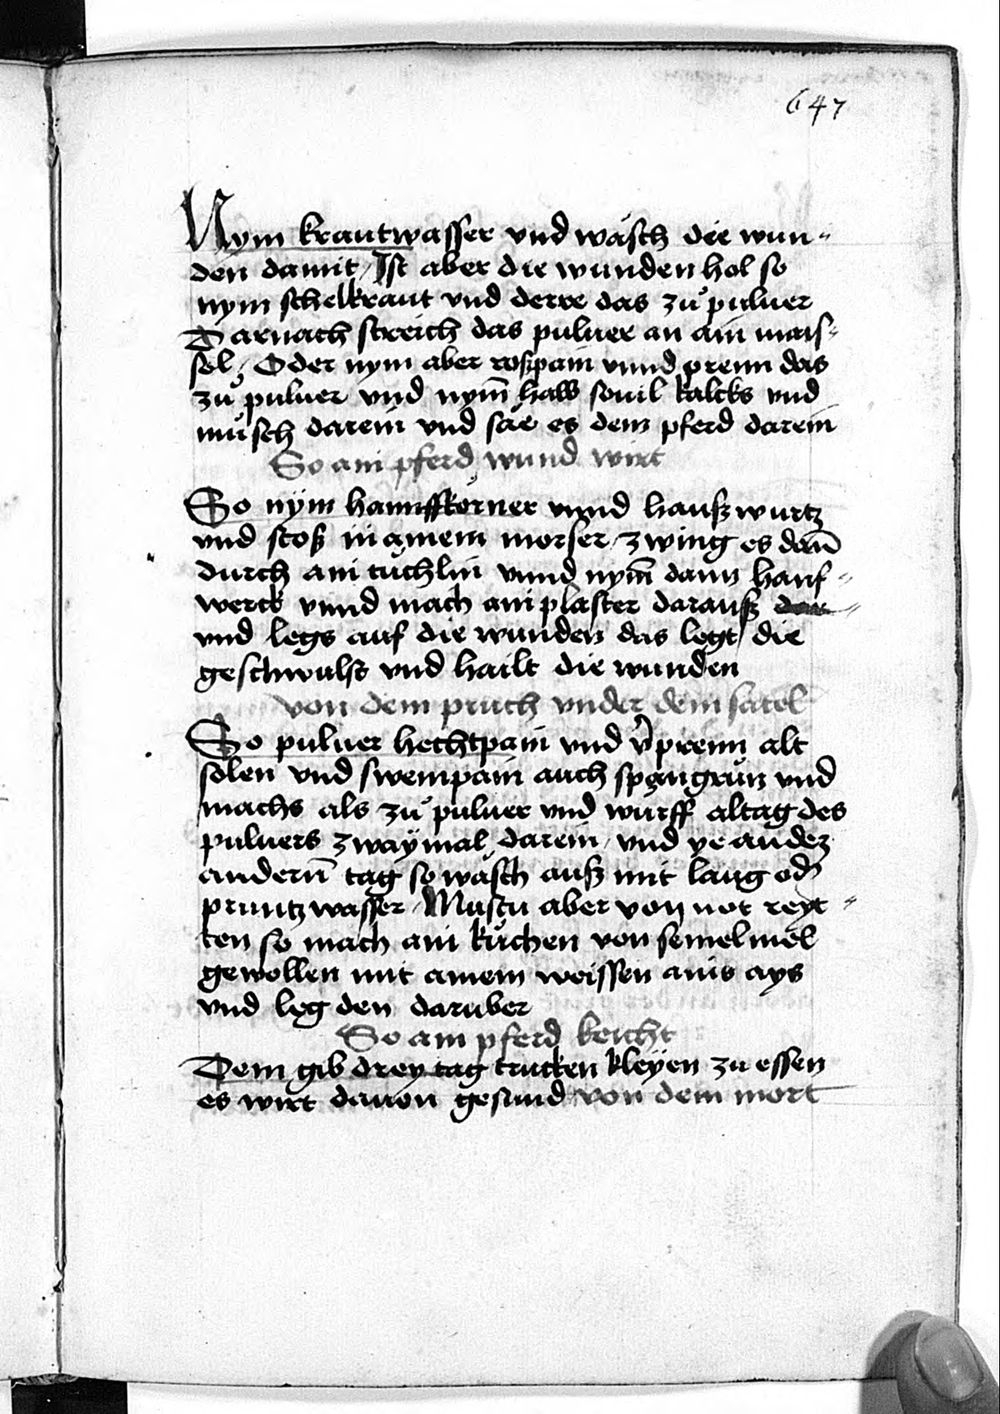 647
Nym krautwasser vnd wäsch die wun-
den damit / Ist aber die wunden hol so
nym schelkraut vnd derre das zů puluer
Darnach streich das puluer an ain mais-
sel / Oder nym aber roßpain vnnd prenn das
zů puluer vnd nym̄ halb souil kalcks vnd
müsch darein vnd säe es dem pferd darein
So ain pferd wund wirt
So nÿm haniffkörner vnnd haußwurtz
vnd stoß in ainem morser / zwing es dan̄
durch ain tüchlin vnnd nym̄ dann hanf-
werck vnnd mach ain plaster darauß
vnd legs auf die wunden das legt die
geschwulst vnd hailt die wunden
von dem pruch vnder dem satel
So puluer hechtpain vnd v̄prenn alt
solen vnd swempain auch spangrün vnd
machs als zů puluer vnd würff altag des
puluers zwaÿmal darein / vnd ye an dez
andern̄ tag so wäsch auß mit laug od̄
pruntzwasser / Mustu aber von not reyt-
ten so mach ain küchen von semelmel
gewollen mit ainem weissen ains ays
vnd leg den daruber
So ain pferd keicht
Dem gib drey tag trucken kleÿen zu essen
es wirt dauon gesund von dem mort